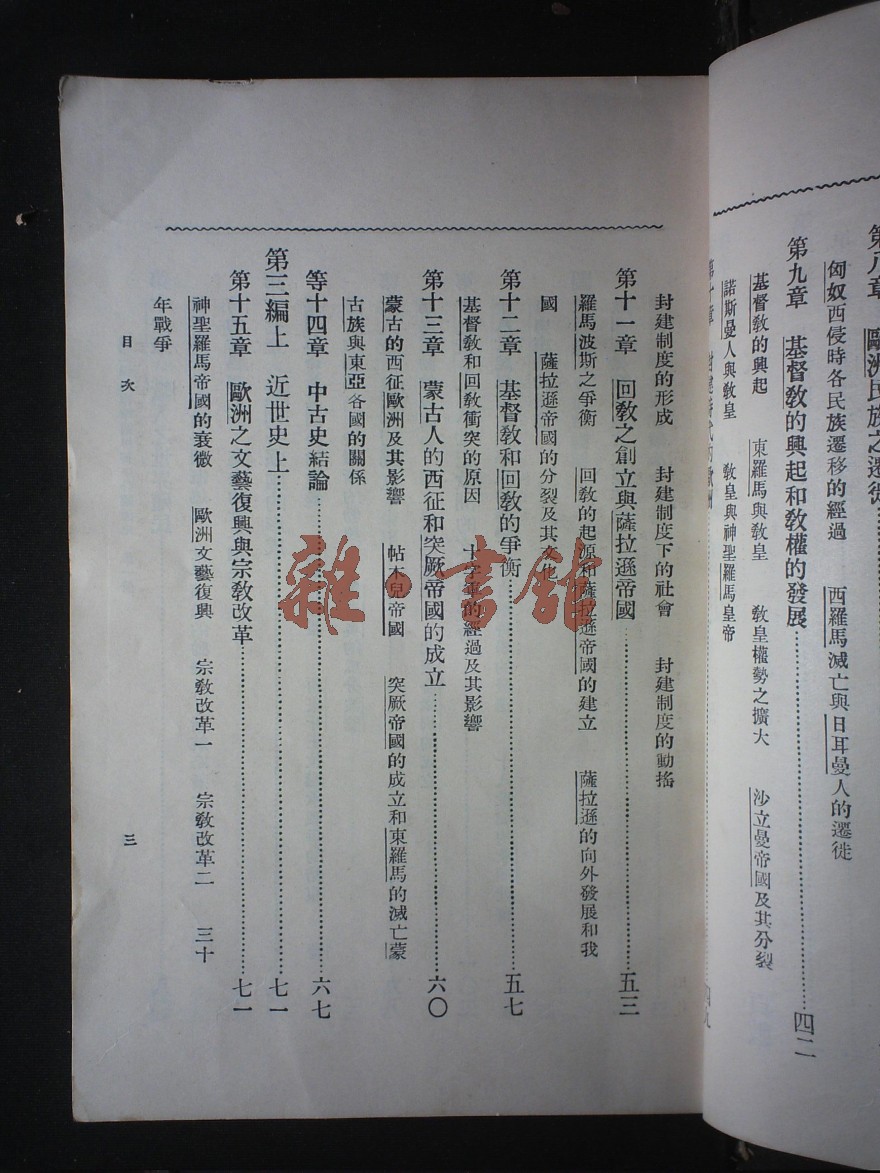 歐洲民族之遷徙
匈奴西侵時各民族遷移的經過 西羅馬滅亡與日耳曼人的遷徙
第九章 基督教的興起和教權的發展 四二
基督教的興起 東羅馬與教皇 教皇權勢之擴大 沙立曼帝國及其分裂
諾斯曼人與教皇 教皇與神聖羅馬皇帝
封建制度的形成 封建制度下的社會 封建制度的動搖
第十一章 回教之創立與薩拉遜帝國 五三
羅馬波斯之爭衡 回教的起源和薩拉遜帝國的建立 薩拉遜的向外發展和我
國 薩拉遜帝國的分裂及其文化
第十二章 基督教和回教的爭衡 五七
基督教和回教衝突的原因 十字軍的經過及其影響
第十三章 蒙古人的西征和突厥帝國的成立 六〇
蒙古的西征歐洲及其影響 帖木兒帝國 突厥帝國的成立和東羅馬的滅亡蒙
古族與東亞各國的關係
等十四章 中古史結論 六七
第三編上 近世史上 七一
第十五章 歐洲之文藝復興與宗教改革 七一
神聖羅馬帝國的衰微 歐洲文藝復興 宗教改革一 宗教改革二 三十
年戰爭
目次 三
雜·書館